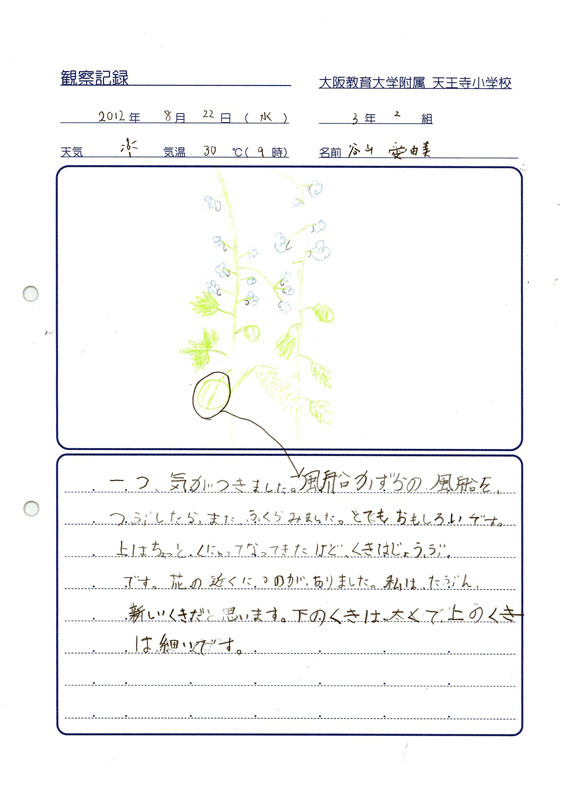 観察記録
大阪教育大学附属 天王寺小学校
2012年 8月 22日 (水)
3年 2組
天気 気温 30 ℃(9時)
名前 谷山 愛由美
一つ、気がつきました。風船かずらの風船を、
つぶしたら、また、ふくらみました。とてもおもしろいです。
上はちょっと、くにゃってなってきたけど、くきはじょうぶ
です。花の近くに、のがありました。私は、たぶん、
新しいくきだと思います。下のくきは、太くて上のくき
は細いです。